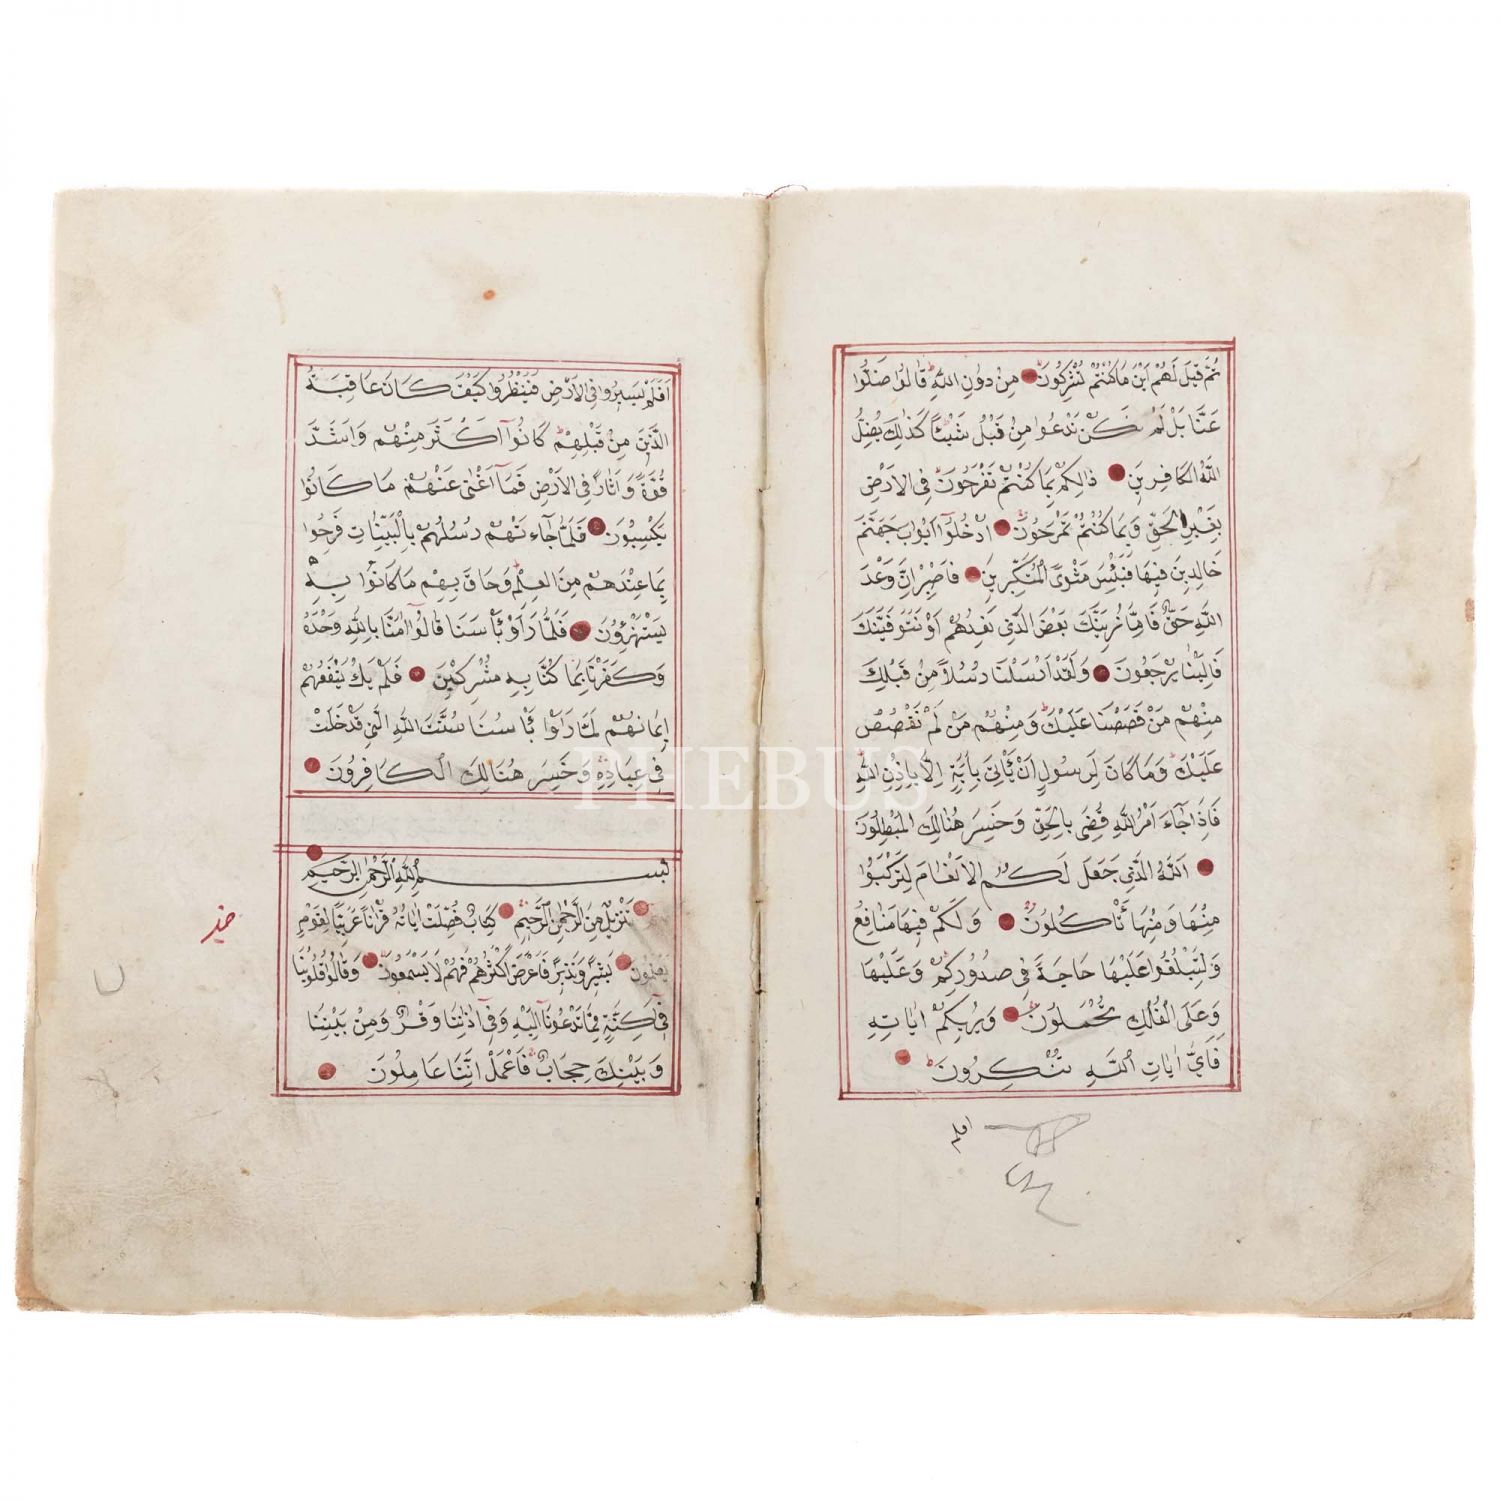 ثُمَّ قِيلَ لَهُمْ اَيْنَ مَا كُنْتُمْ تُشْرِكُونَ مِنْ دُونِ اللّٰهِ قَالُوا ضَلُّوا
عَنَّا بَلْ لَمْ نَكُنْ نَدْعُوا مِنْ قَبْلُ شَيْئًا كَذٰلِكَ يُضِلُّ
اللّٰهُ الْكَافِرِينَ ذٰلِكُمْ بِمَا كُنْتُمْ تَفْرَحُونَ فِي الْاَرْضِ
بِغَيْرِ الْحَقِّ وَبِمَا كُنْتُمْ تَمْرَحُونَ اُدْخُلُوا اَبْوَابَ جَهَنَّمَ
خَالِدِينَ فِيهَا فَبِئْسَ مَثْوَى الْمُتَكَبِّرِينَ فَاصْبِرْ اِنَّ وَعْدَ
اللّٰهِ حَقٌّ فَاِمَّا نُرِيَنَّكَ بَعْضَ الَّذِي نَعِدُهُمْ اَوْ نَتَوَفَّيَنَّكَ
فَاِلَيْنَا يُرْجَعُونَ وَلَقَدْ اَرْسَلْنَا رُسُلًا مِنْ قَبْلِكَ
مِنْهُمْ مَنْ قَصَصْنَا عَلَيْكَ وَمِنْهُمْ مَنْ لَمْ نَقْصُصْ
عَلَيْكَ وَمَا كَانَ لِرَسُولٍ اَنْ يَأْتِيَ بِاٰيَةٍ اِلَّا بِاِذْنِ اللّٰهِ
فَاِذَا جَاءَ اَمْرُ اللّٰهِ قُضِيَ بِالْحَقِّ وَخَسِرَ هُنَالِكَ الْمُبْطِلُونَ
اَللّٰهُ الَّذِي جَعَلَ لَكُمُ الْاَنْعَامَ لِتَرْكَبُوا
مِنْهَا وَمِنْهَا تَأْكُلُونَ وَلَكُمْ فِيهَا مَنَافِعُ
وَلِتَبْلُغُوا عَلَيْهَا حَاجَةً فِي صُدُورِكُمْ وَعَلَيْهَا
وَعَلَى الْفُلْكِ تُحْمَلُونَ وَيُرِيكُمْ اٰيَاتِهِ
فَاَيَّ اٰيَاتِ اللّٰهِ تُنْكِرُونَ
افلم
اَفَلَمْ يَسِيرُوا فِي الْاَرْضِ فَيَنْظُرُوا كَيْفَ كَانَ عَاقِبَةُ
الَّذِينَ مِنْ قَبْلِهِمْ كَانُوا اَكْثَرَ مِنْهُمْ وَاَشَدَّ
قُوَّةً وَاٰثَارًا فِي الْاَرْضِ فَمَا اَغْنٰى عَنْهُمْ مَا كَانُوا
يَكْسِبُونَ فَلَمَّا جَاءَتْهُمْ رُسُلُهُمْ بِالْبَيِّنَاتِ فَرِحُوا
بِمَا عِنْدَهُمْ مِنَ الْعِلْمِ وَحَاقَ بِهِمْ مَا كَانُوا بِهِ
يَسْتَهْزِؤُنَ فَلَمَّا رَاَوْ بَأْسَنَا قَالُوا اٰمَنَّا بِاللّٰهِ وَحْدَهُ
وَكَفَرْنَا بِمَا كُنَّا بِهِ مُشْرِكِينَ فَلَمْ يَكُ يَنْفَعُهُمْ
اِيمَانُهُمْ لَمَّا رَاَوْا بَأْسَنَا سُنَّتَ اللّٰهِ الَّتِي قَدْ خَلَتْ
فِي عِبَادِهِ وَخَسِرَ هُنَالِكَ الْكَافِرُونَ
بِسْمِ اللّٰهِ الرَّحْمٰنِ الرَّحِيمِ
تَنْزِيلٌ مِنَ الرَّحْمٰنِ الرَّحِيمِ كِتَابٌ فُصِّلَتْ اٰيَاتُهُ قُرْاٰنًا عَرَبِيًّا لِقَوْمٍ
يَعْلَمُونَ بَشِيرًا وَنَذِيرًا فَاَعْرَضَ اَكْثَرُهُمْ فَهُمْ لَا يَسْمَعُونَ وَقَالُوا قُلُوبُنَا
فِي اَكِنَّةٍ مِمَّا تَدْعُونَا اِلَيْهِ وَفِي اٰذَانِنَا وَقْرٌ وَمِنْ بَيْنِنَا
وَبَيْنِكَ حِجَابٌ فَاعْمَلْ اِنَّنَا عَامِلُونَ
PHEBUS